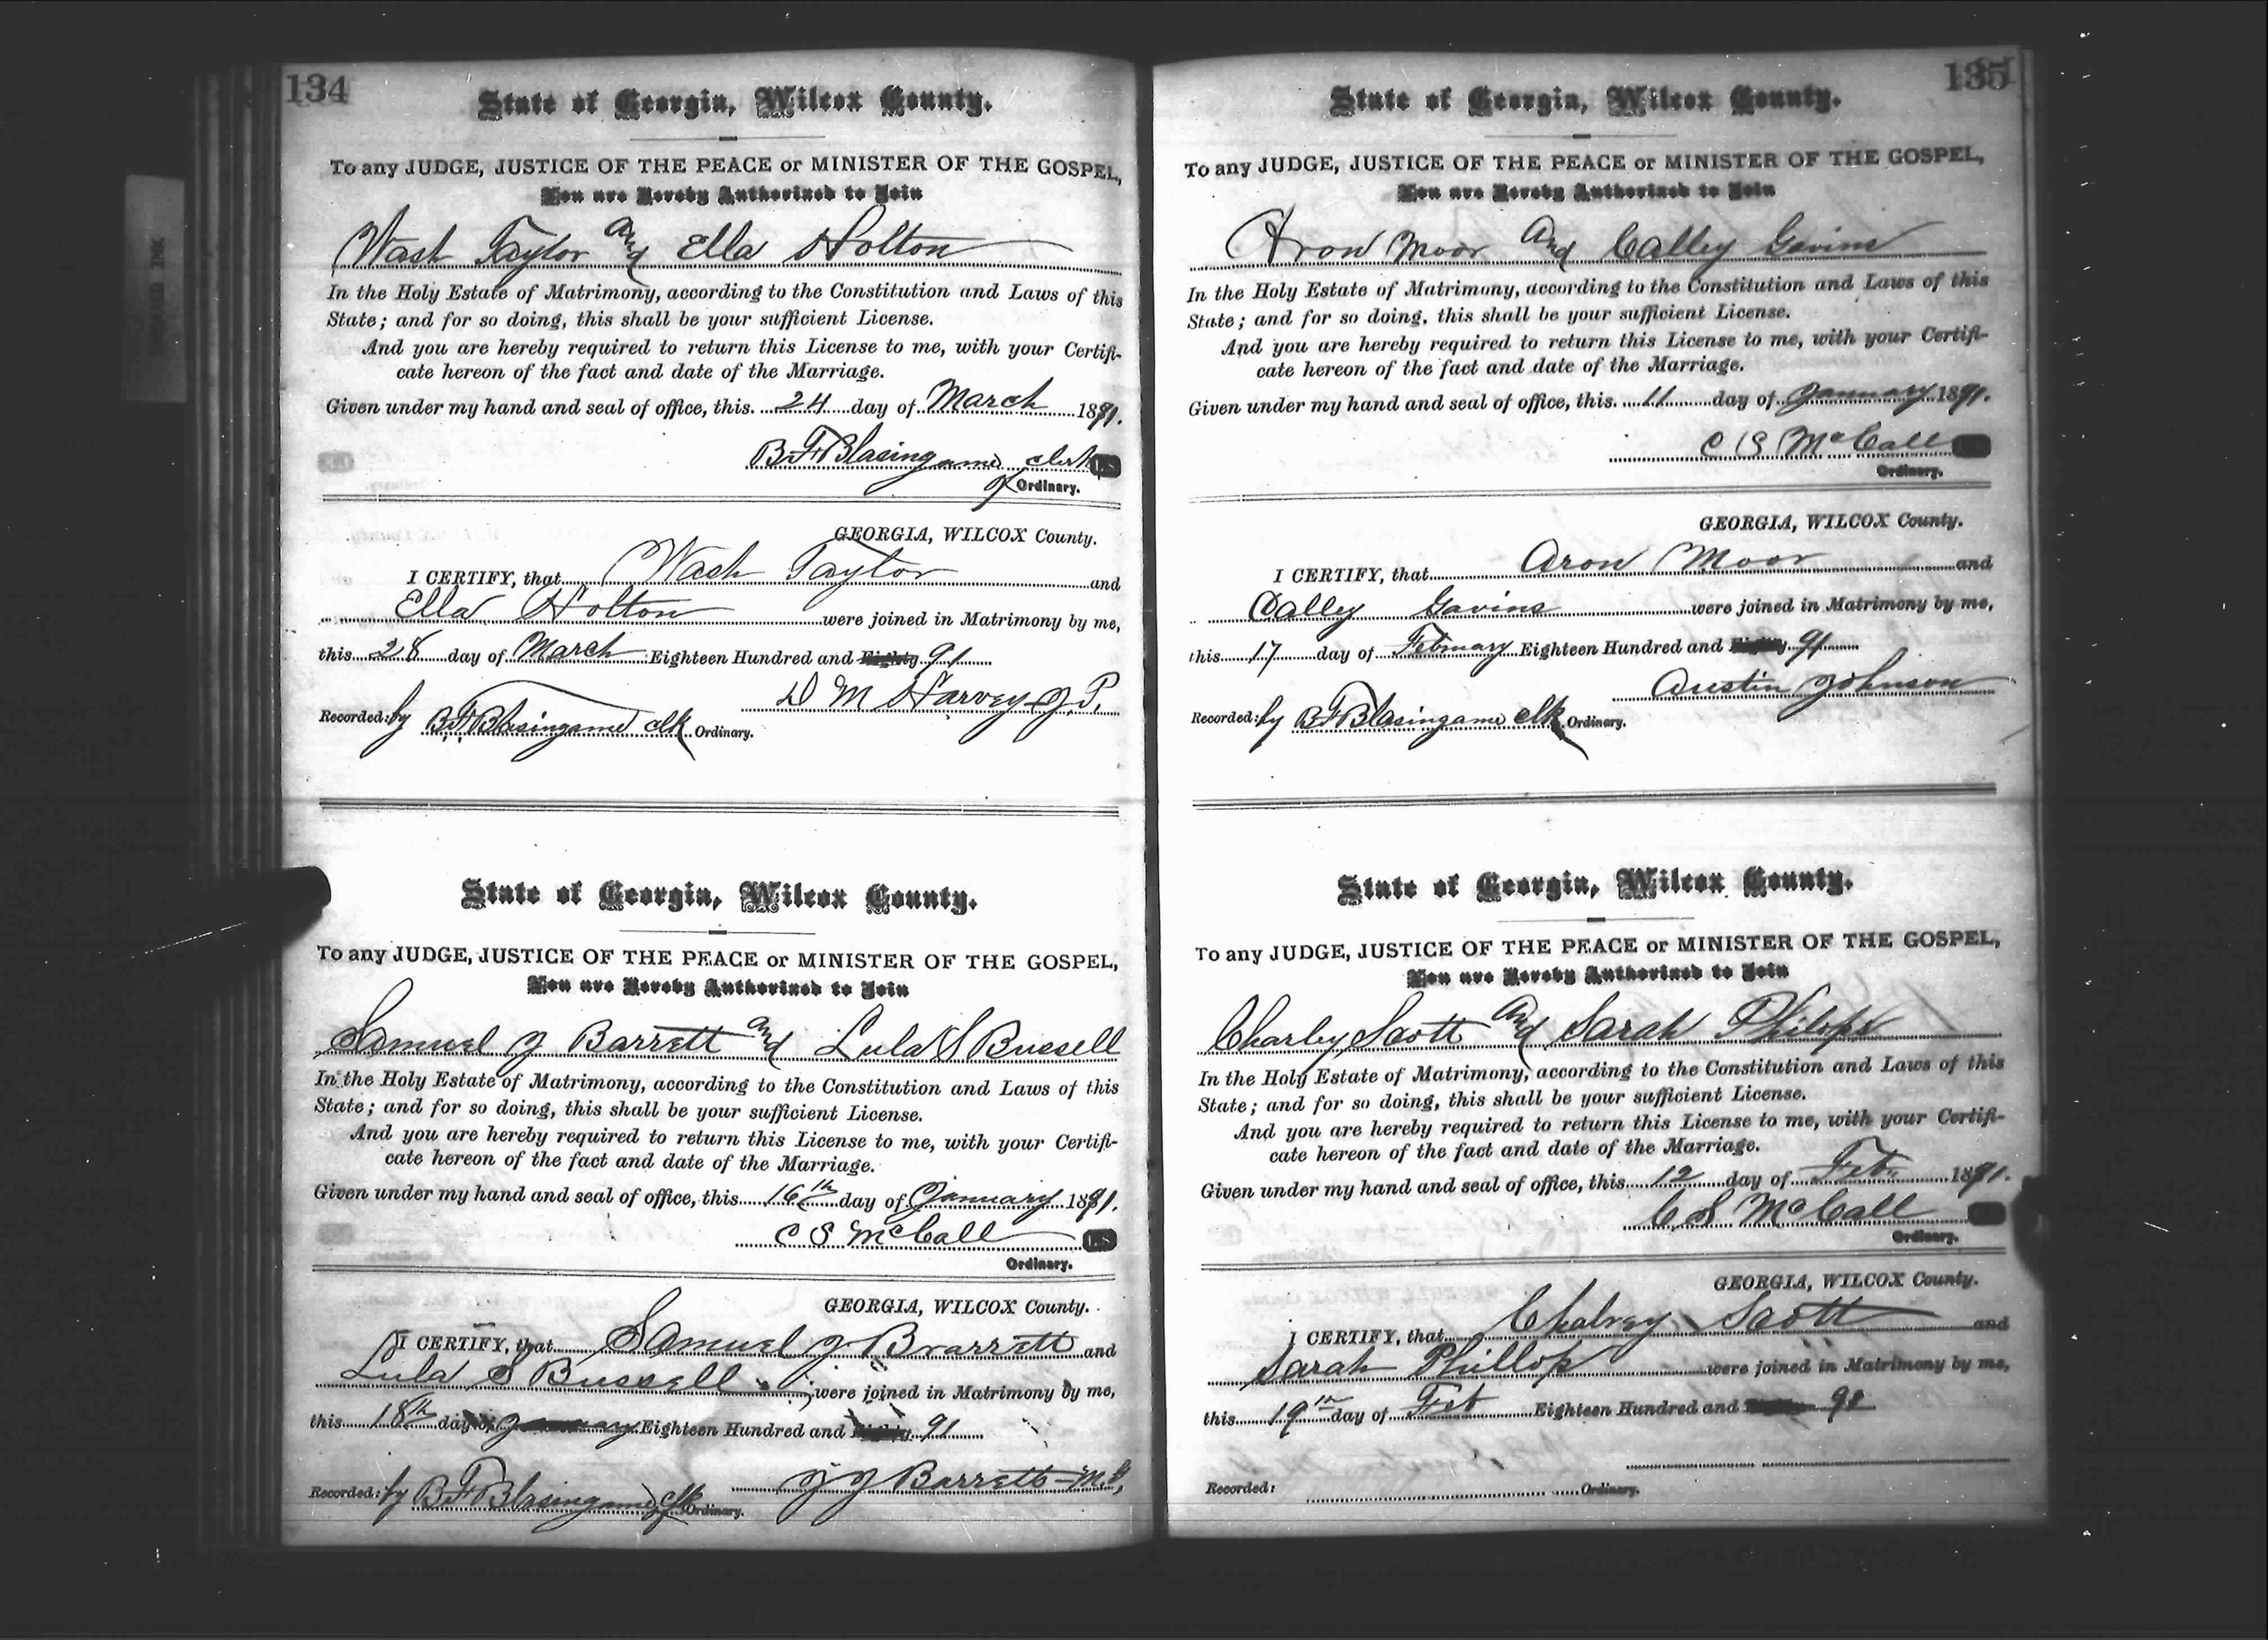 134
State of Georgia, Wilcox County.
To any JUDGE, JUSTICE OF THE PEACE or MINISTER OF THE GOSPEL,
You are Hereby Authorized to Join
Wash Taylor and Ella Holton
In the Holy Estate of Matrimony, according to the Constitution and Laws of this
State; and for so doing, this shall be your sufficient License.
And you are hereby required to return this License to me, with your Certifi-
cate hereon of the fact and date of the Marriage.
Given under my hand and seal of office, this 24 day of March 1891.
B F Blasingame clerk LS
of Ordinary.
GEORGIA, WILCOX County.
I CERTIFY, that Wash Taylor and
Ella Holton were joined in Matrimony by me,
this 28 day of March Eighteen Hundred and Eighty 91
D M Harvey J.P.
Recorded: by B F Blasingame clk Ordinary.
State of Georgia, Wilcox County.
To any JUDGE, JUSTICE OF THE PEACE or MINISTER OF THE GOSPEL,
You are Hereby Authorized to Join
Samuel J Barrett and Lula S Bussell
In the Holy Estate of Matrimony, according to the Constitution and Laws of this
State; and for so doing, this shall be your sufficient License.
And you are hereby required to return this License to me, with your Certifi-
cate hereon of the fact and date of the Marriage.
Given under my hand and seal of office, this 16th day of January 1891.
C S McCall LS
Ordinary.
GEORGIA, WILCOX County.
I CERTIFY, that Samuel J Brarrett and
Lula S Bussell were joined in Matrimony by me,
this 18th day of January Eighteen Hundred and Eighty 91
J J Barrett M.G.
Recorded: by B F Blasingame clk Ordinary.
135
State of Georgia, Wilcox County.
To any JUDGE, JUSTICE OF THE PEACE or MINISTER OF THE GOSPEL,
You are Hereby Authorized to Join
Aron Moor and Calley Gavins
In the Holy Estate of Matrimony, according to the Constitution and Laws of this
State; and for so doing, this shall be your sufficient License.
And you are hereby required to return this License to me, with your Certifi-
cate hereon of the fact and date of the Marriage.
Given under my hand and seal of office, this 11 day of January 1891.
C S McCall
Ordinary.
GEORGIA, WILCOX County.
I CERTIFY, that Aron Moor and
Calley Gavins were joined in Matrimony by me,
this 17 day of February Eighteen Hundred and Eighty 91
Austin Johnson
Recorded: by B F Blasingame clk Ordinary.
State of Georgia, Wilcox County.
To any JUDGE, JUSTICE OF THE PEACE or MINISTER OF THE GOSPEL,
You are Hereby Authorized to Join
Charley Scott and Sarah Philops
In the Holy Estate of Matrimony, according to the Constitution and Laws of this
State; and for so doing, this shall be your sufficient License.
And you are hereby required to return this License to me, with your Certifi-
cate hereon of the fact and date of the Marriage.
Given under my hand and seal of office, this 12 day of Feb 1891.
C S McCall
Ordinary.
GEORGIA, WILCOX County.
I CERTIFY, that Chalrey Scott and
Sarah Phillop were joined in Matrimony by me,
this 19th day of Feb Eighteen Hundred and 91
Recorded: Ordinary.